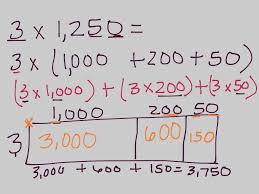 3 x 1,250 =
3 x (1,000 + 200 + 50)
(3 x 1,000) + (3 x 200) + (3 x 50)
x 1,000 200 50
3 3,000 600 150
3,000 + 600 + 150 = 3,750